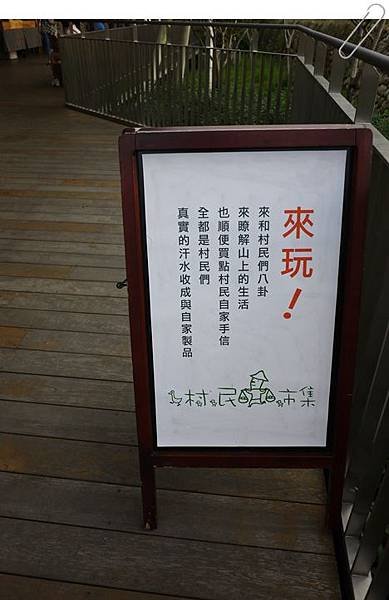 來玩！
來和村民們八卦
來瞭解山上的生活
也順便買點村民自家手信
全都是村民們
真實的汗水收成與自家製品
村民市集